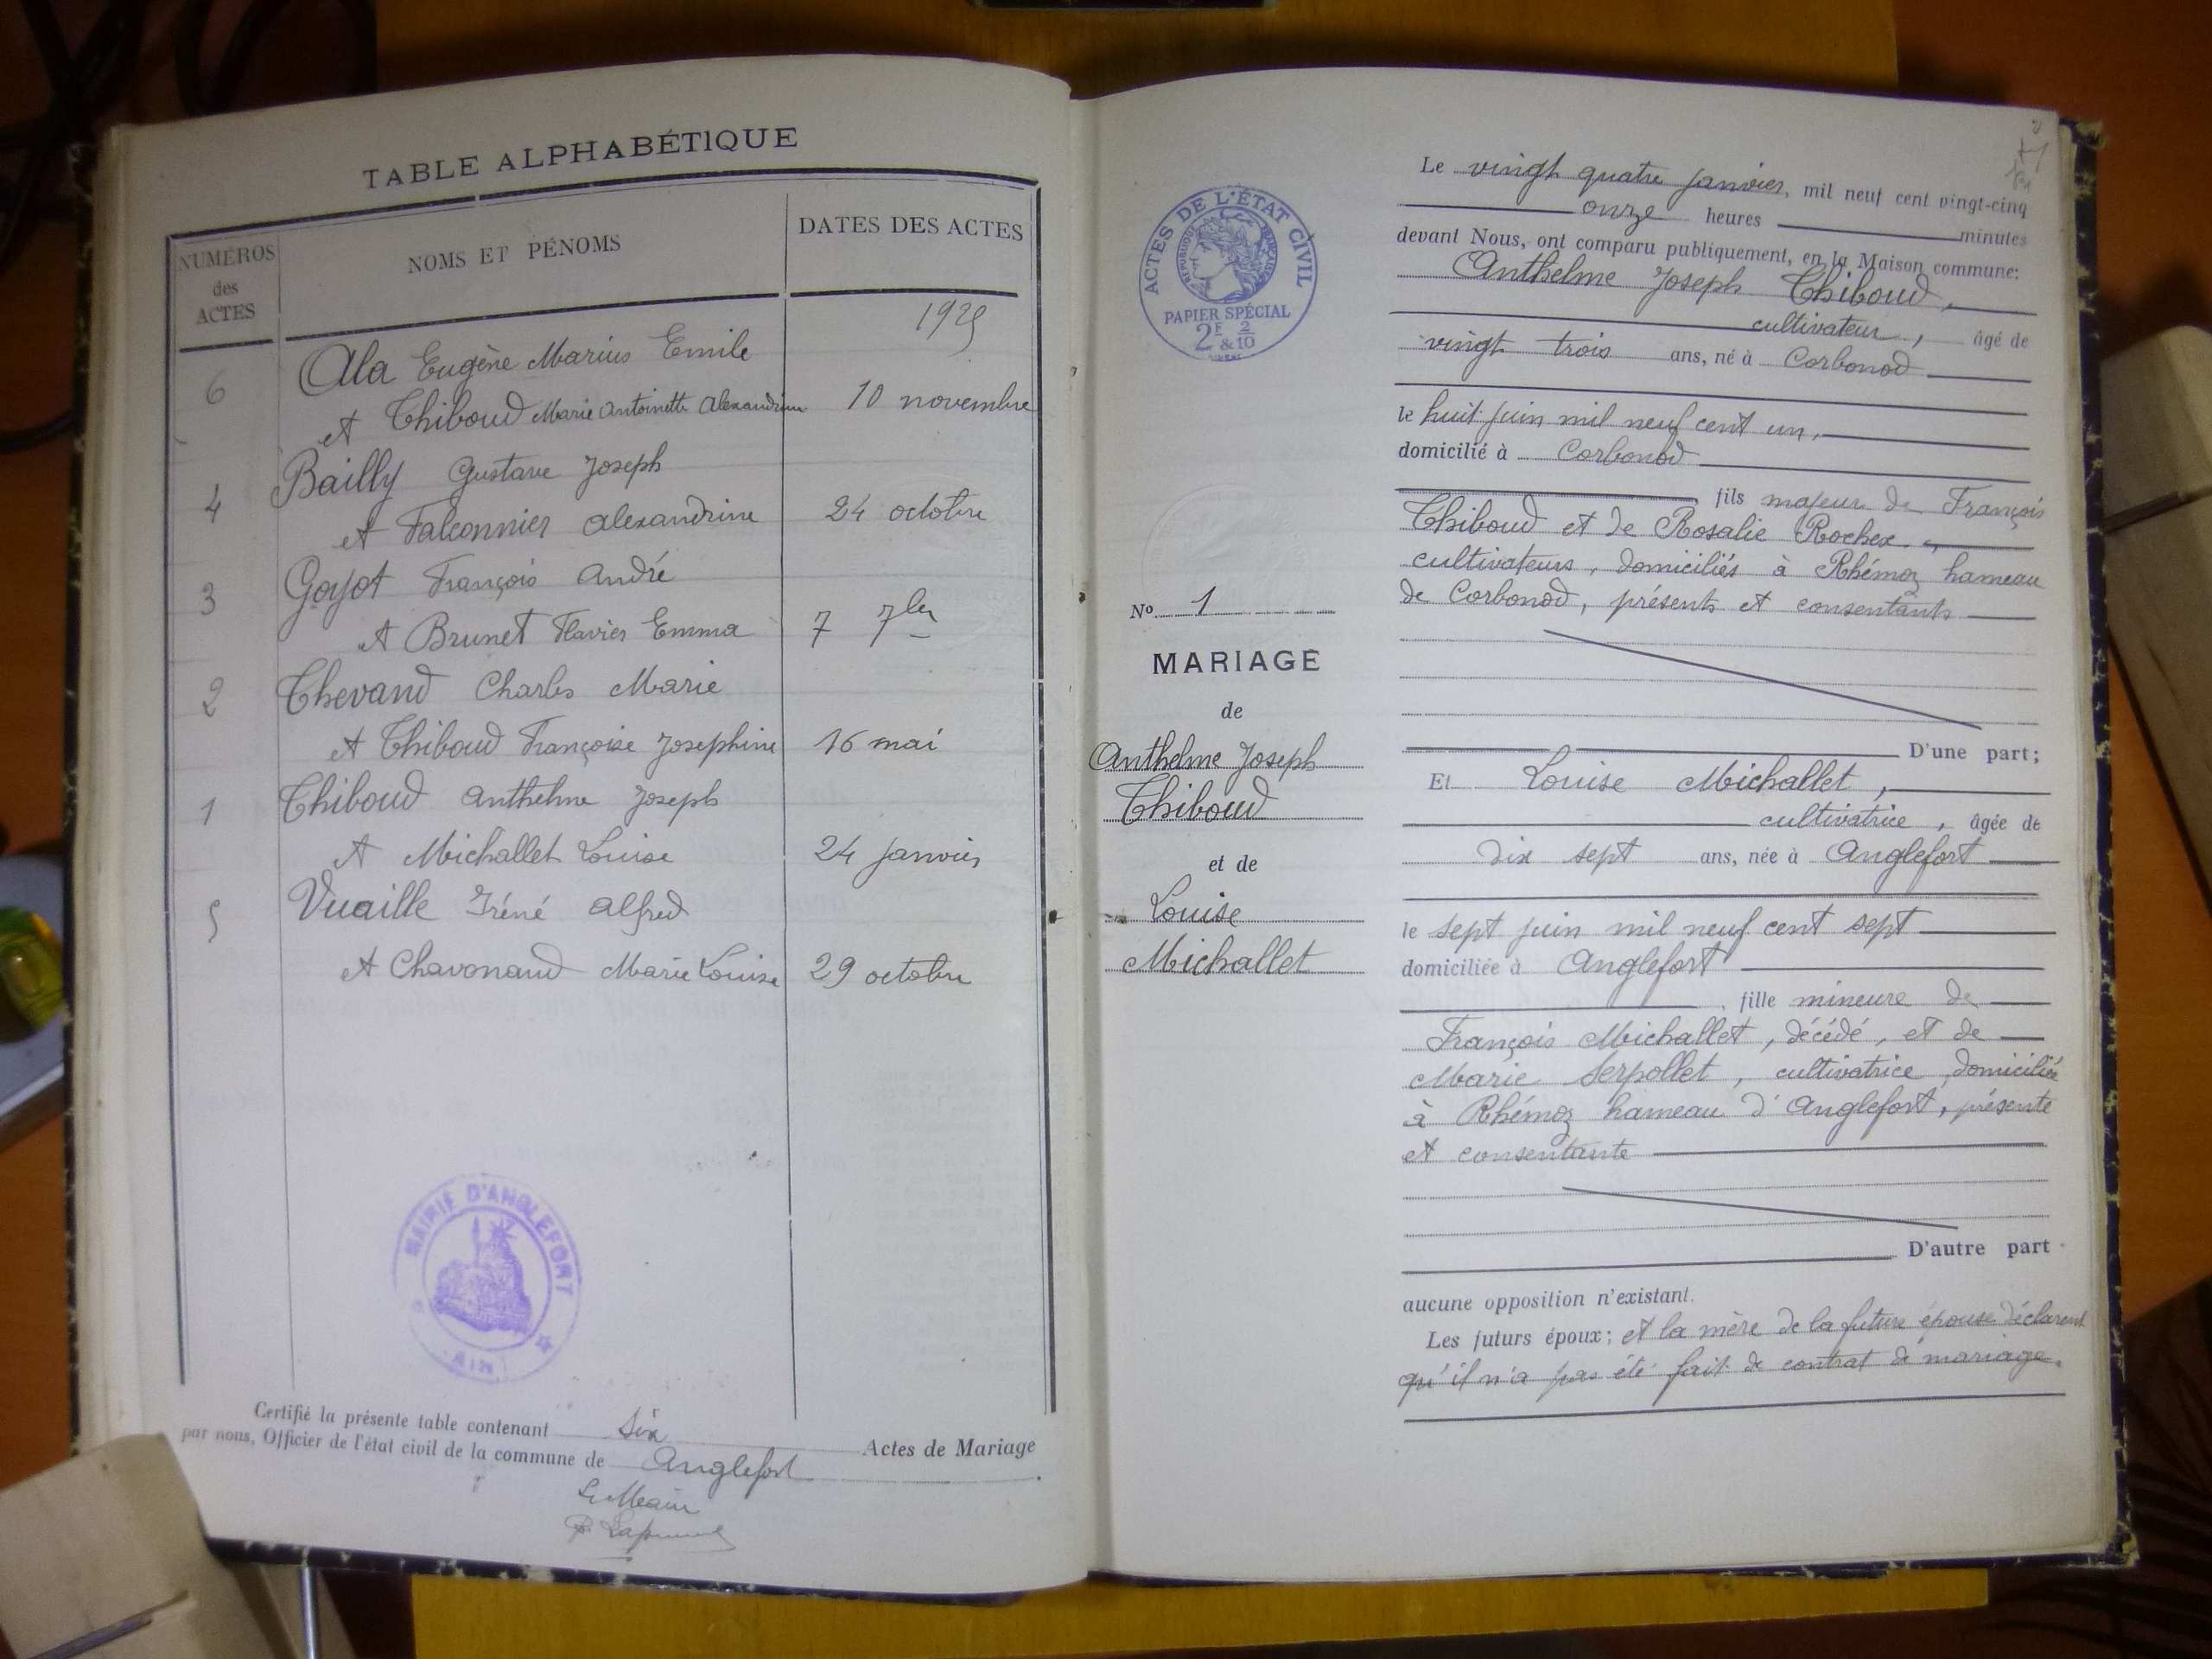 TABLE ALPHABÉTIQUE
NUMÉROS des ACTES
NOMS ET PÉNOMS
DATES DES ACTES
1925
6 Ala Eugène Marius Emile
et Thiboud Marie Antoinette Alexandrine 10 novembre
4 Bailly Gustave Joseph
et Falconnier Alexandrine 24 octobre
3 Goyot François André
et Brunet Flavier Emma 7 7bre
2 Thevand Charles Marie
et Thiboud Françoise Josephine 16 mai
1 Thiboud Anthelme Joseph
et Michallet Louise 24 janvier
5 Vuaille Iréné Alfred
et Chavonand Marie Louise 29 octobre
MAIRIE D'ANGLEFORT
(AIN)
Certifié la présente table contenant six Actes de Mariage
par nous, Officier de l'état civil de la commune de Anglefort
Le Maire
ACTES DE L'ÉTAT CIVIL
RÉPUBLIQUE FRANÇAISE
PAPIER SPÉCIAL
2F & 2/10
No 1
MARIAGE
de
Anthelme Joseph
Thiboud
et de
Louise
Michallet
Le vingt quatre janvier, mil neuf cent vingt-cinq
onze heures minutes
devant Nous, ont comparu publiquement, en la Maison commune:
Anthelme Joseph Thiboud,
cultivateur, âgé de
vingt trois ans, né à Corbonod
le huit juin mil neuf cent un,
domicilié à Corbonod
fils majeur de François
Thiboud et de Rosalie Rochex
cultivateurs, domiciliés à Rhémoz hameau
de Corbonod, présents et consentants
D'une part;
Et Louise Michallet,
cultivatrice, âgée de
dix sept ans, née à Anglefort
le sept juin mil neuf cent sept
domiciliée à Anglefort
, fille mineure de
François Michallet, décédé, et de
Marie Serpollet, cultivatrice, domiciliée
à Rhémoz hameau d'Anglefort, présente
et consentante
D'autre part
aucune opposition n'existant.
Les futurs époux; et la mère de la future épouse déclarent
qu'il n'a pas été fait de contrat de mariage.